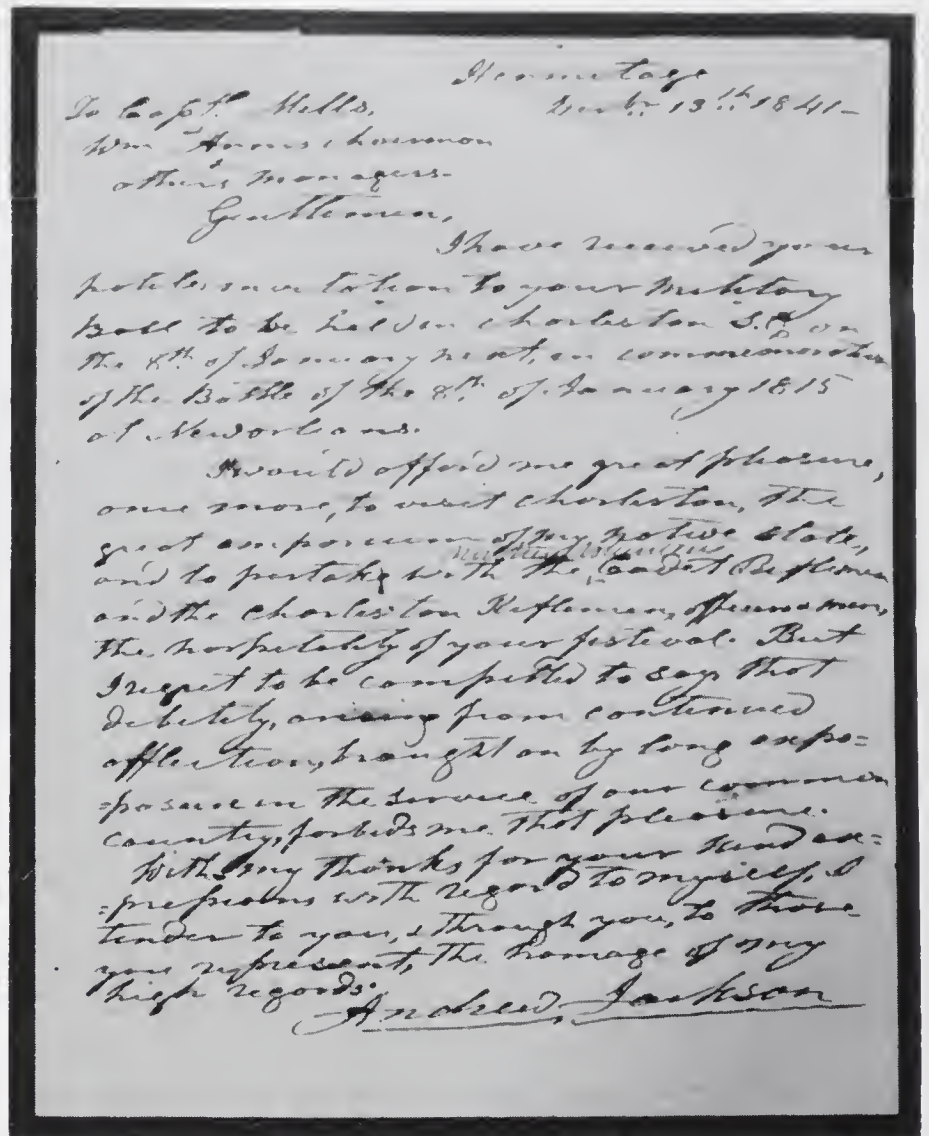 Hermitage
Decbr. 13th. 1841—
To Capt. Mills,
Wm
others managers.
Gentlemen,
I have received your
polite invitation to your Military
Ball to be held in Charleston S. C. on
the 8th. of January next, in commemoration
of the Battle of the 8th. of January 1815
at Neworleans.
It would afford me great pleasure,
once more, to visit Charleston, the
great emporium of my native state,
and to partake with the Cadet Riflemen
and the Charleston Riflemen, officers & men,
the hospitality of your festival. But
I regret to be compelled to say that
debility, arising from continued
affliction, brought on by long expo=
=posure in the service of our common
country, forbids me that pleasure.
With my thanks for your kind ex=
=pressions with regard to myself, I
tender to you, & through you, to those
you represent, the homage of my
high regards.
Andrew Jackson